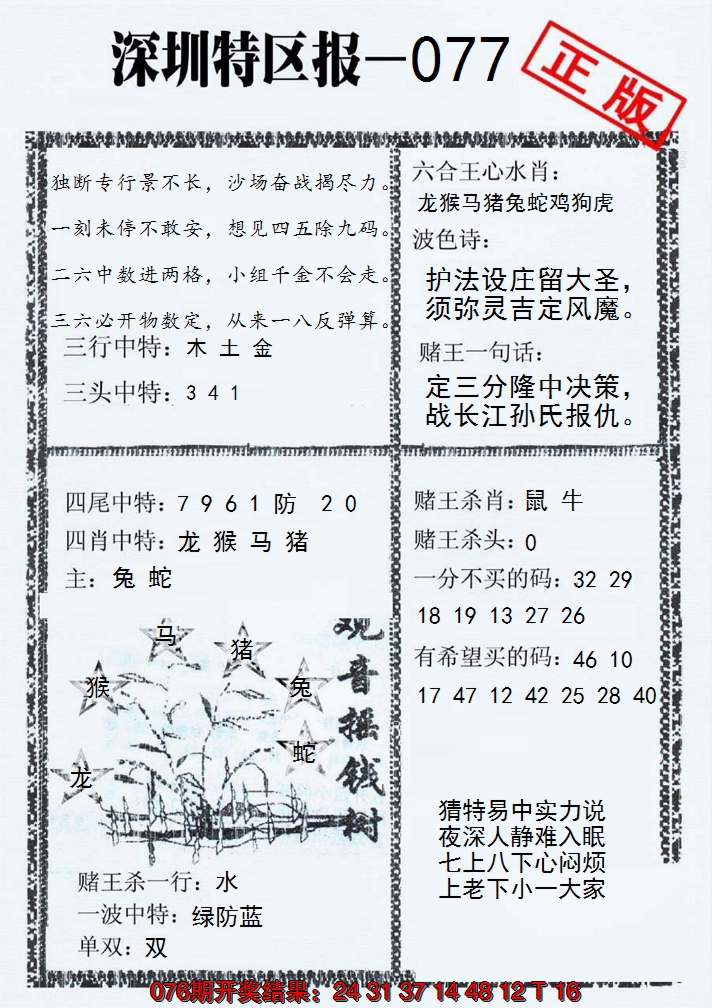 深圳特区报—077
正版
独断专行景不长，沙场奋战揭尽力。
一刻未停不敢安，想见四五除九码。
二六中数进两格，小组千金不会走。
三六必开物数定，从来一八反弹算。
三行中特：木 土 金
三头中特：3 4 1
六合王心水肖：
龙猴马猪兔蛇鸡狗虎
波色诗：
护法设庄留大圣，
须弥灵吉定风魔。
赌王一句话：
定三分隆中决策，
战长江孙氏报仇。
四尾中特：7 9 6 1 防 2 0
四肖中特：龙 猴 马 猪
主：兔 蛇
马
猪
猴
兔
蛇
龙
观音摇钱树
赌王杀一行：水
一波中特：绿防蓝
单双：双
赌王杀肖：鼠 牛
赌王杀头：0
一分不买的码：32 29
18 19 13 27 26
有希望买的码：46 10
17 47 12 42 25 28 40
猜特易中实力说
夜深人静难入眠
七上八下心闷烦
上老下小一大家
076期开奖结果：24 31 37 14 48 12 T 16